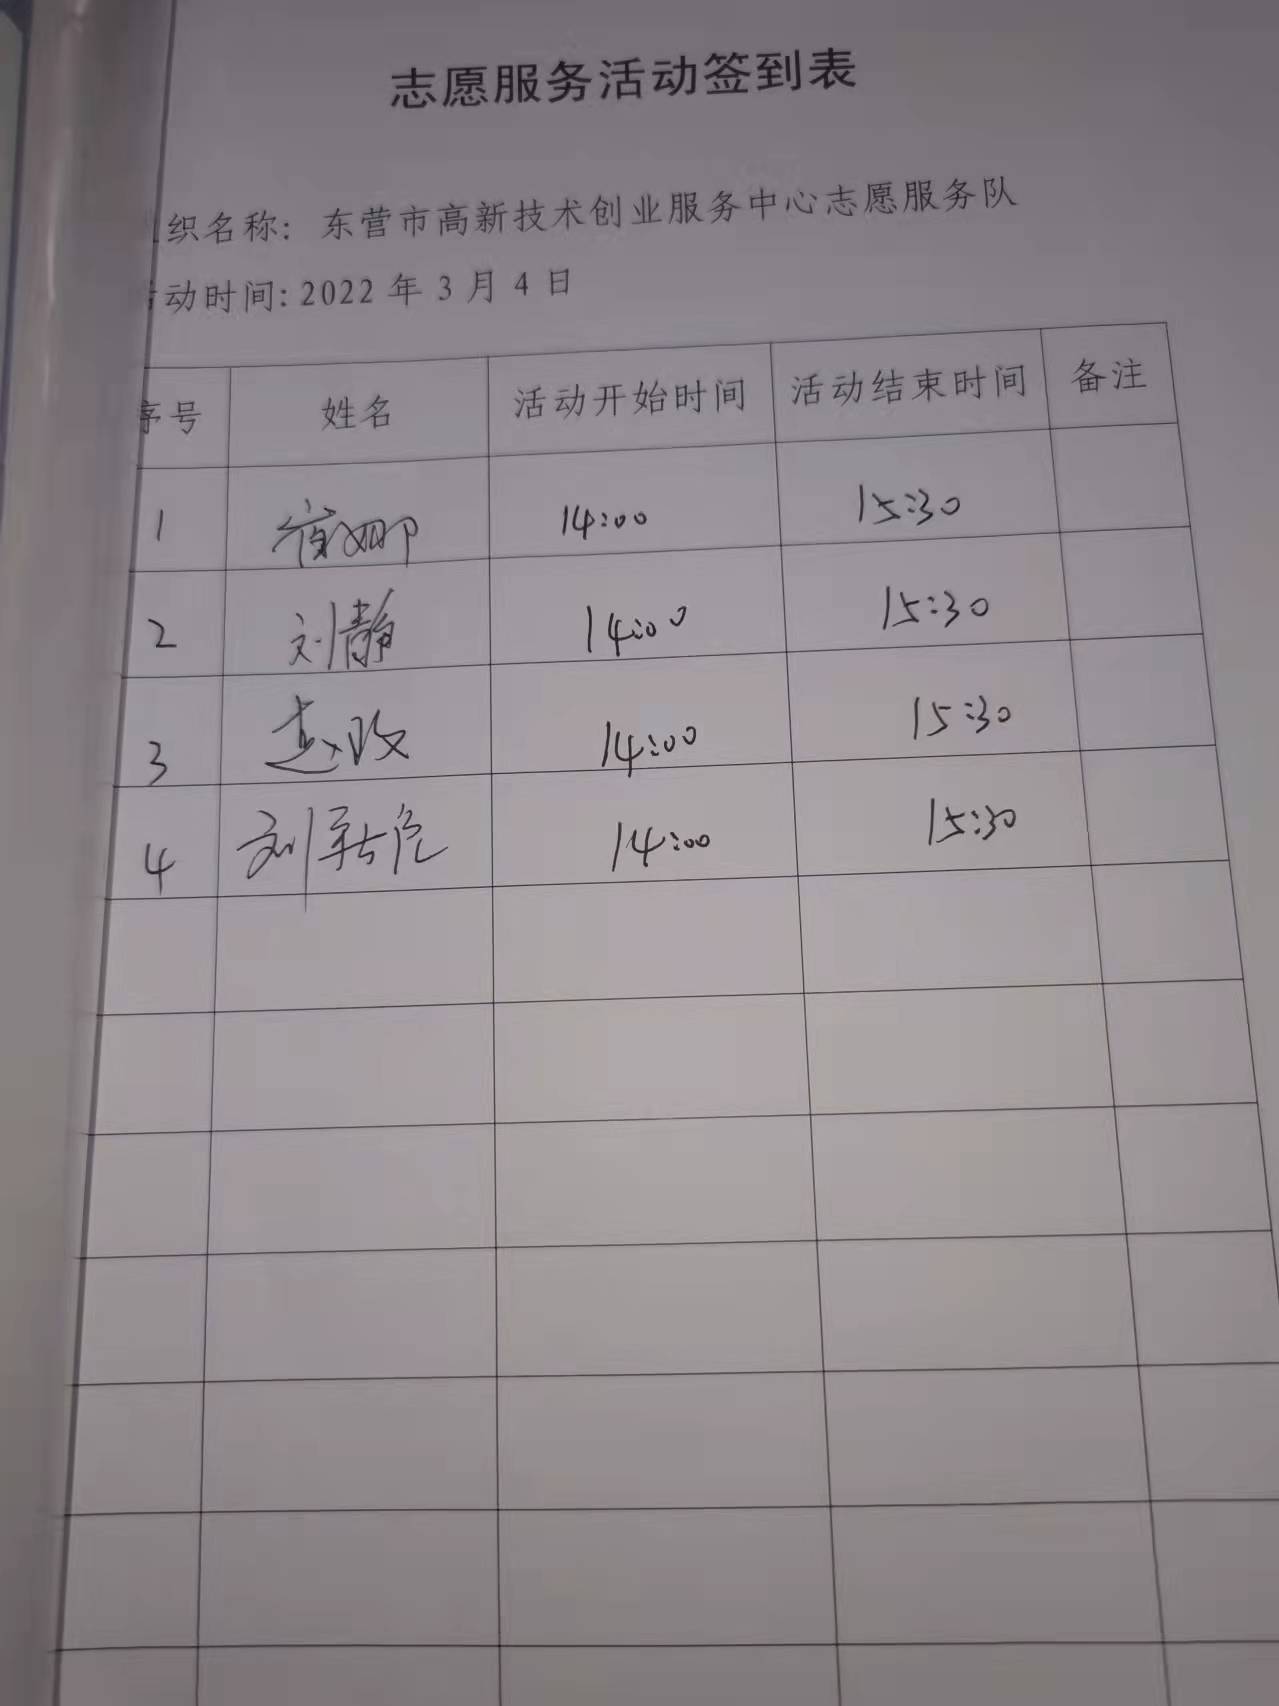 志愿服务活动签到表
组织名称: 东营市高新技术创业服务中心志愿服务队
活动时间: 2022 年 3 月 4 日
序号 姓名 活动开始时间 活动结束时间 备注
1 14:00 15:30
2 刘静 14:00 15:30
3 赵政 14:00 15:30
4 刘 14:00 15:30